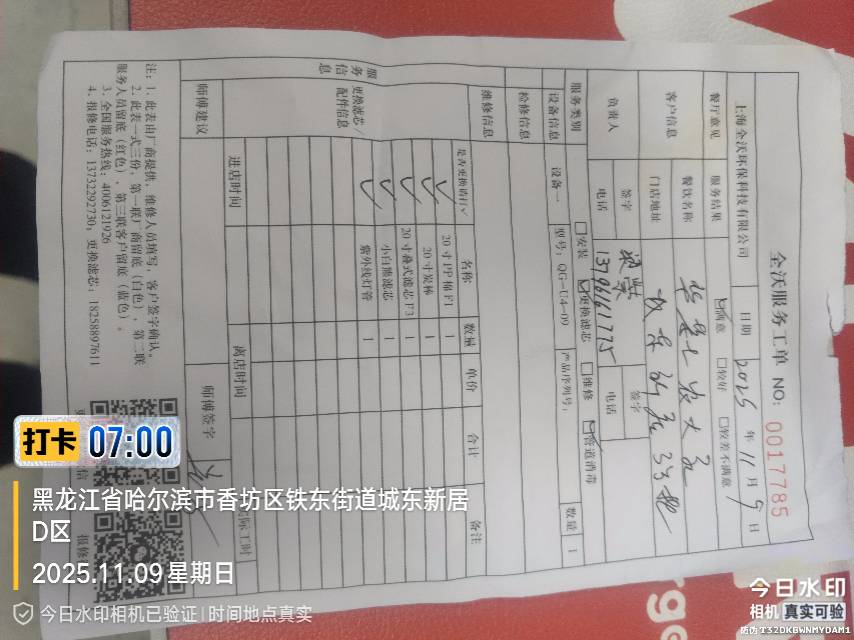 全沃服务工单 NO: 0017785
上海全沃环保科技有限公司 日期 2025 年 11 月 9 日
餐厅意见 服务结果 ☑满意 □较好 □较差不满意
客户信息 餐饮名称
门店地址
负责人 签字 签字
电话 13796161775 电话
服务类别 □安装 ☑更换滤芯 □维修 ☑管道消毒
设备信息 设备一 型号: QG-U4-09 产品序列号: 数量 1
检修信息
维修信息
服务信息
更换滤芯/配件信息
是否更换请打✓ 名称 数量 单价 合计 备注
✓ 20寸PP棉F1 1
✓ 20寸炭棒 1
✓ 20寸叠式滤芯F3 1
✓ 小白熊滤芯 1
✓ 紫外线灯管 1
进店时间 离店时间 实际工时
师傅建议 师傅签字
注: 1. 此表由厂商提供, 维修人员填写, 客户签字确认。
2. 此表一式三份, 第一联厂商留底(白色), 第二联
服务人员留底(红色), 第三联客户留底(蓝色)。
3. 全国服务热线: 4006121926
4. 报修电话: 13732292730, 更换滤芯: 18258897611
打卡 07:00
黑龙江省哈尔滨市香坊区铁东街道城东新居
D区
2025.11.09 星期日
今日水印相机已验证 | 时间地点真实
今日水印
相机 真实可验
防伪 T32DKBWNMYDAM1